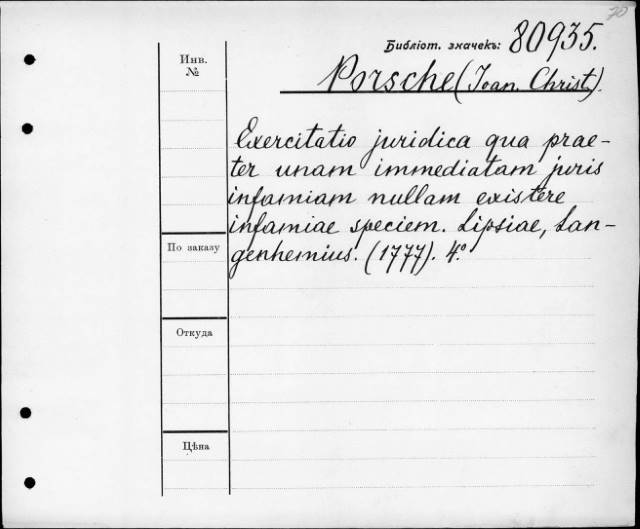 70
Библіот. значекъ: 80935.
Porsche (Ioan. Christ.).
Инв.
№
Exercitatio juridica qua prae-
ter unam immediatam juris
infamiam nullam existere
infamiae speciem. Lipsiae, Lan-
genhemius. (1777). 4°
По заказу
Откуда
Цѣна